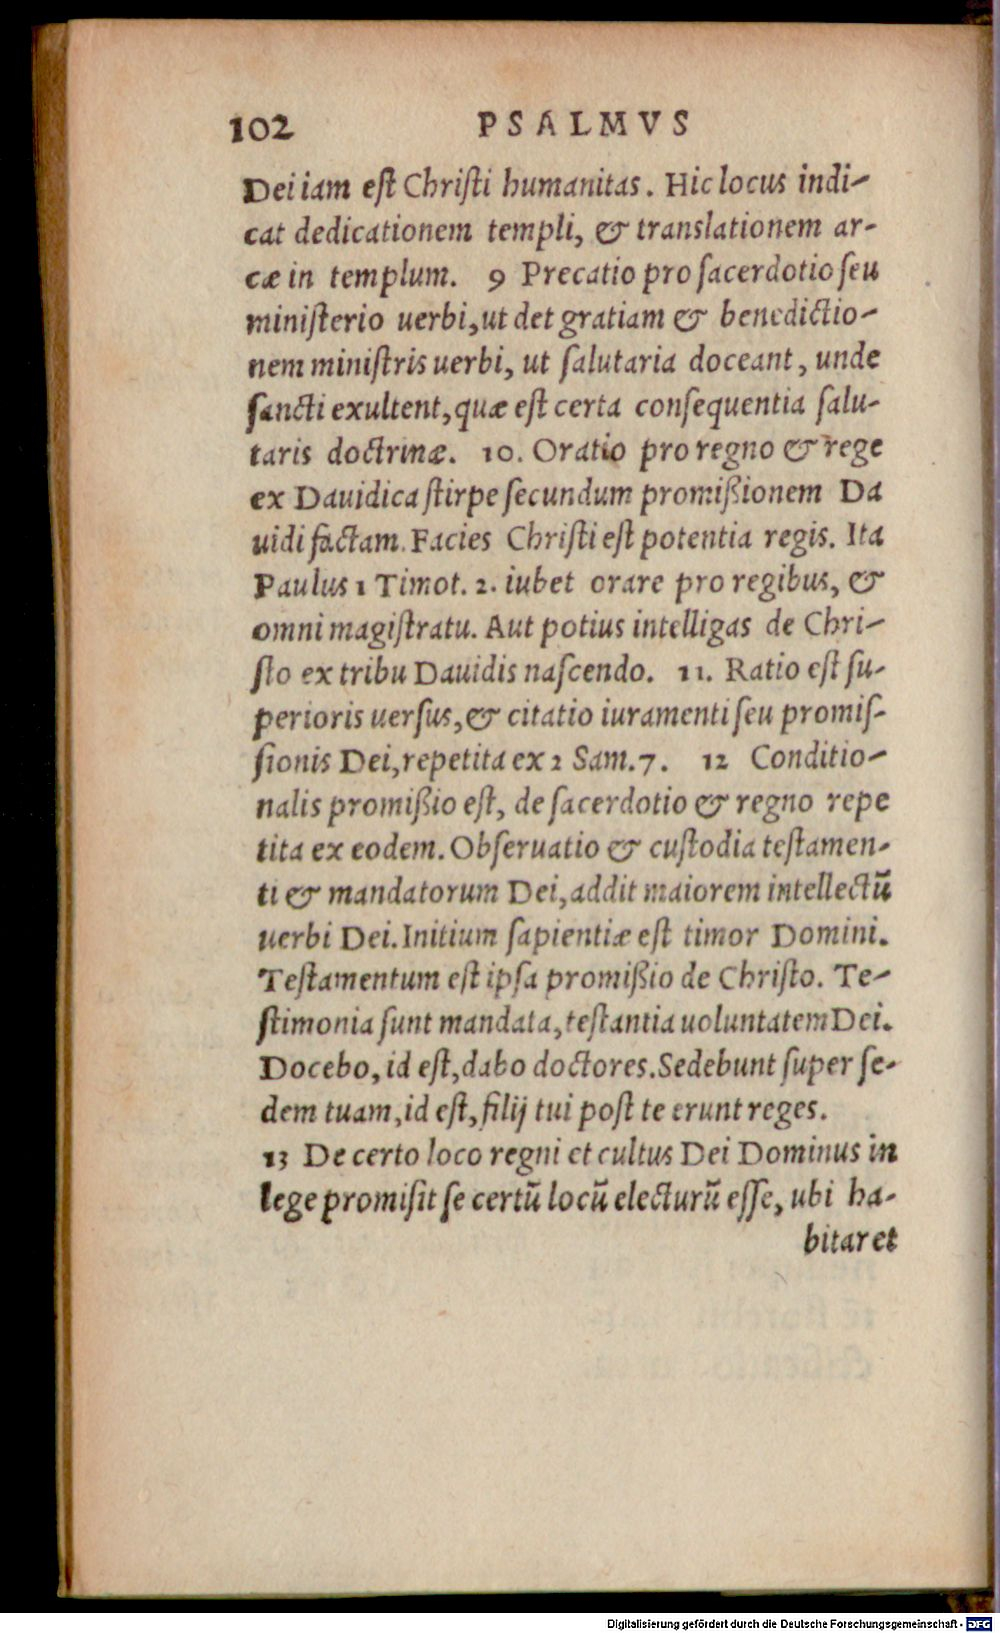 102 PSALMVS
Dei iam eſt Chriſti humanitas. Hic locus indi-
cat dedicationem templi, & translationem ar-
cæ in templum. 9 Precatio pro ſacerdotio ſeu
miniſterio uerbi, ut det gratiam & benedictio-
nem miniſtris uerbi, ut ſalutaria doceant, unde
ſancti exultent, quæ eſt certa conſequentia ſalu-
taris doctrinæ. 10. Oratio pro regno & rege
ex Dauidica ſtirpe ſecundum promißionem Da
uidi factam. Facies Chriſti eſt potentia regis. Ita
Paulus 1 Timot. 2. iubet orare pro regibus, &
omni magiſtratu. Aut potius intelligas de Chri-
ſto ex tribu Dauidis naſcendo. 11. Ratio eſt ſu-
perioris uerſus, & citatio iuramenti ſeu promiſ-
ſionis Dei, repetita ex 2 Sam. 7. 12 Conditio-
nalis promißio eſt, de ſacerdotio & regno repe
tita ex eodem. Obſeruatio & cuſtodia teſtamen-
ti & mandatorum Dei, addit maiorem intellectũ
uerbi Dei. Initium ſapientiæ eſt timor Domini.
Teſtamentum eſt ipſa promißio de Chriſto. Te-
ſtimonia ſunt mandata, teſtantia uoluntatem Dei.
Docebo, id eſt, dabo doctores. Sedebunt ſuper ſe-
dem tuam, id eſt, filij tui poſt te erunt reges.
13 De certo loco regni et cultus Dei Dominus in
lege promiſit ſe certũ locũ electurũ eſſe, ubi ha-
bitaret
Digitalisierung gefördert durch die Deutsche Forschungsgemeinschaft - DFG